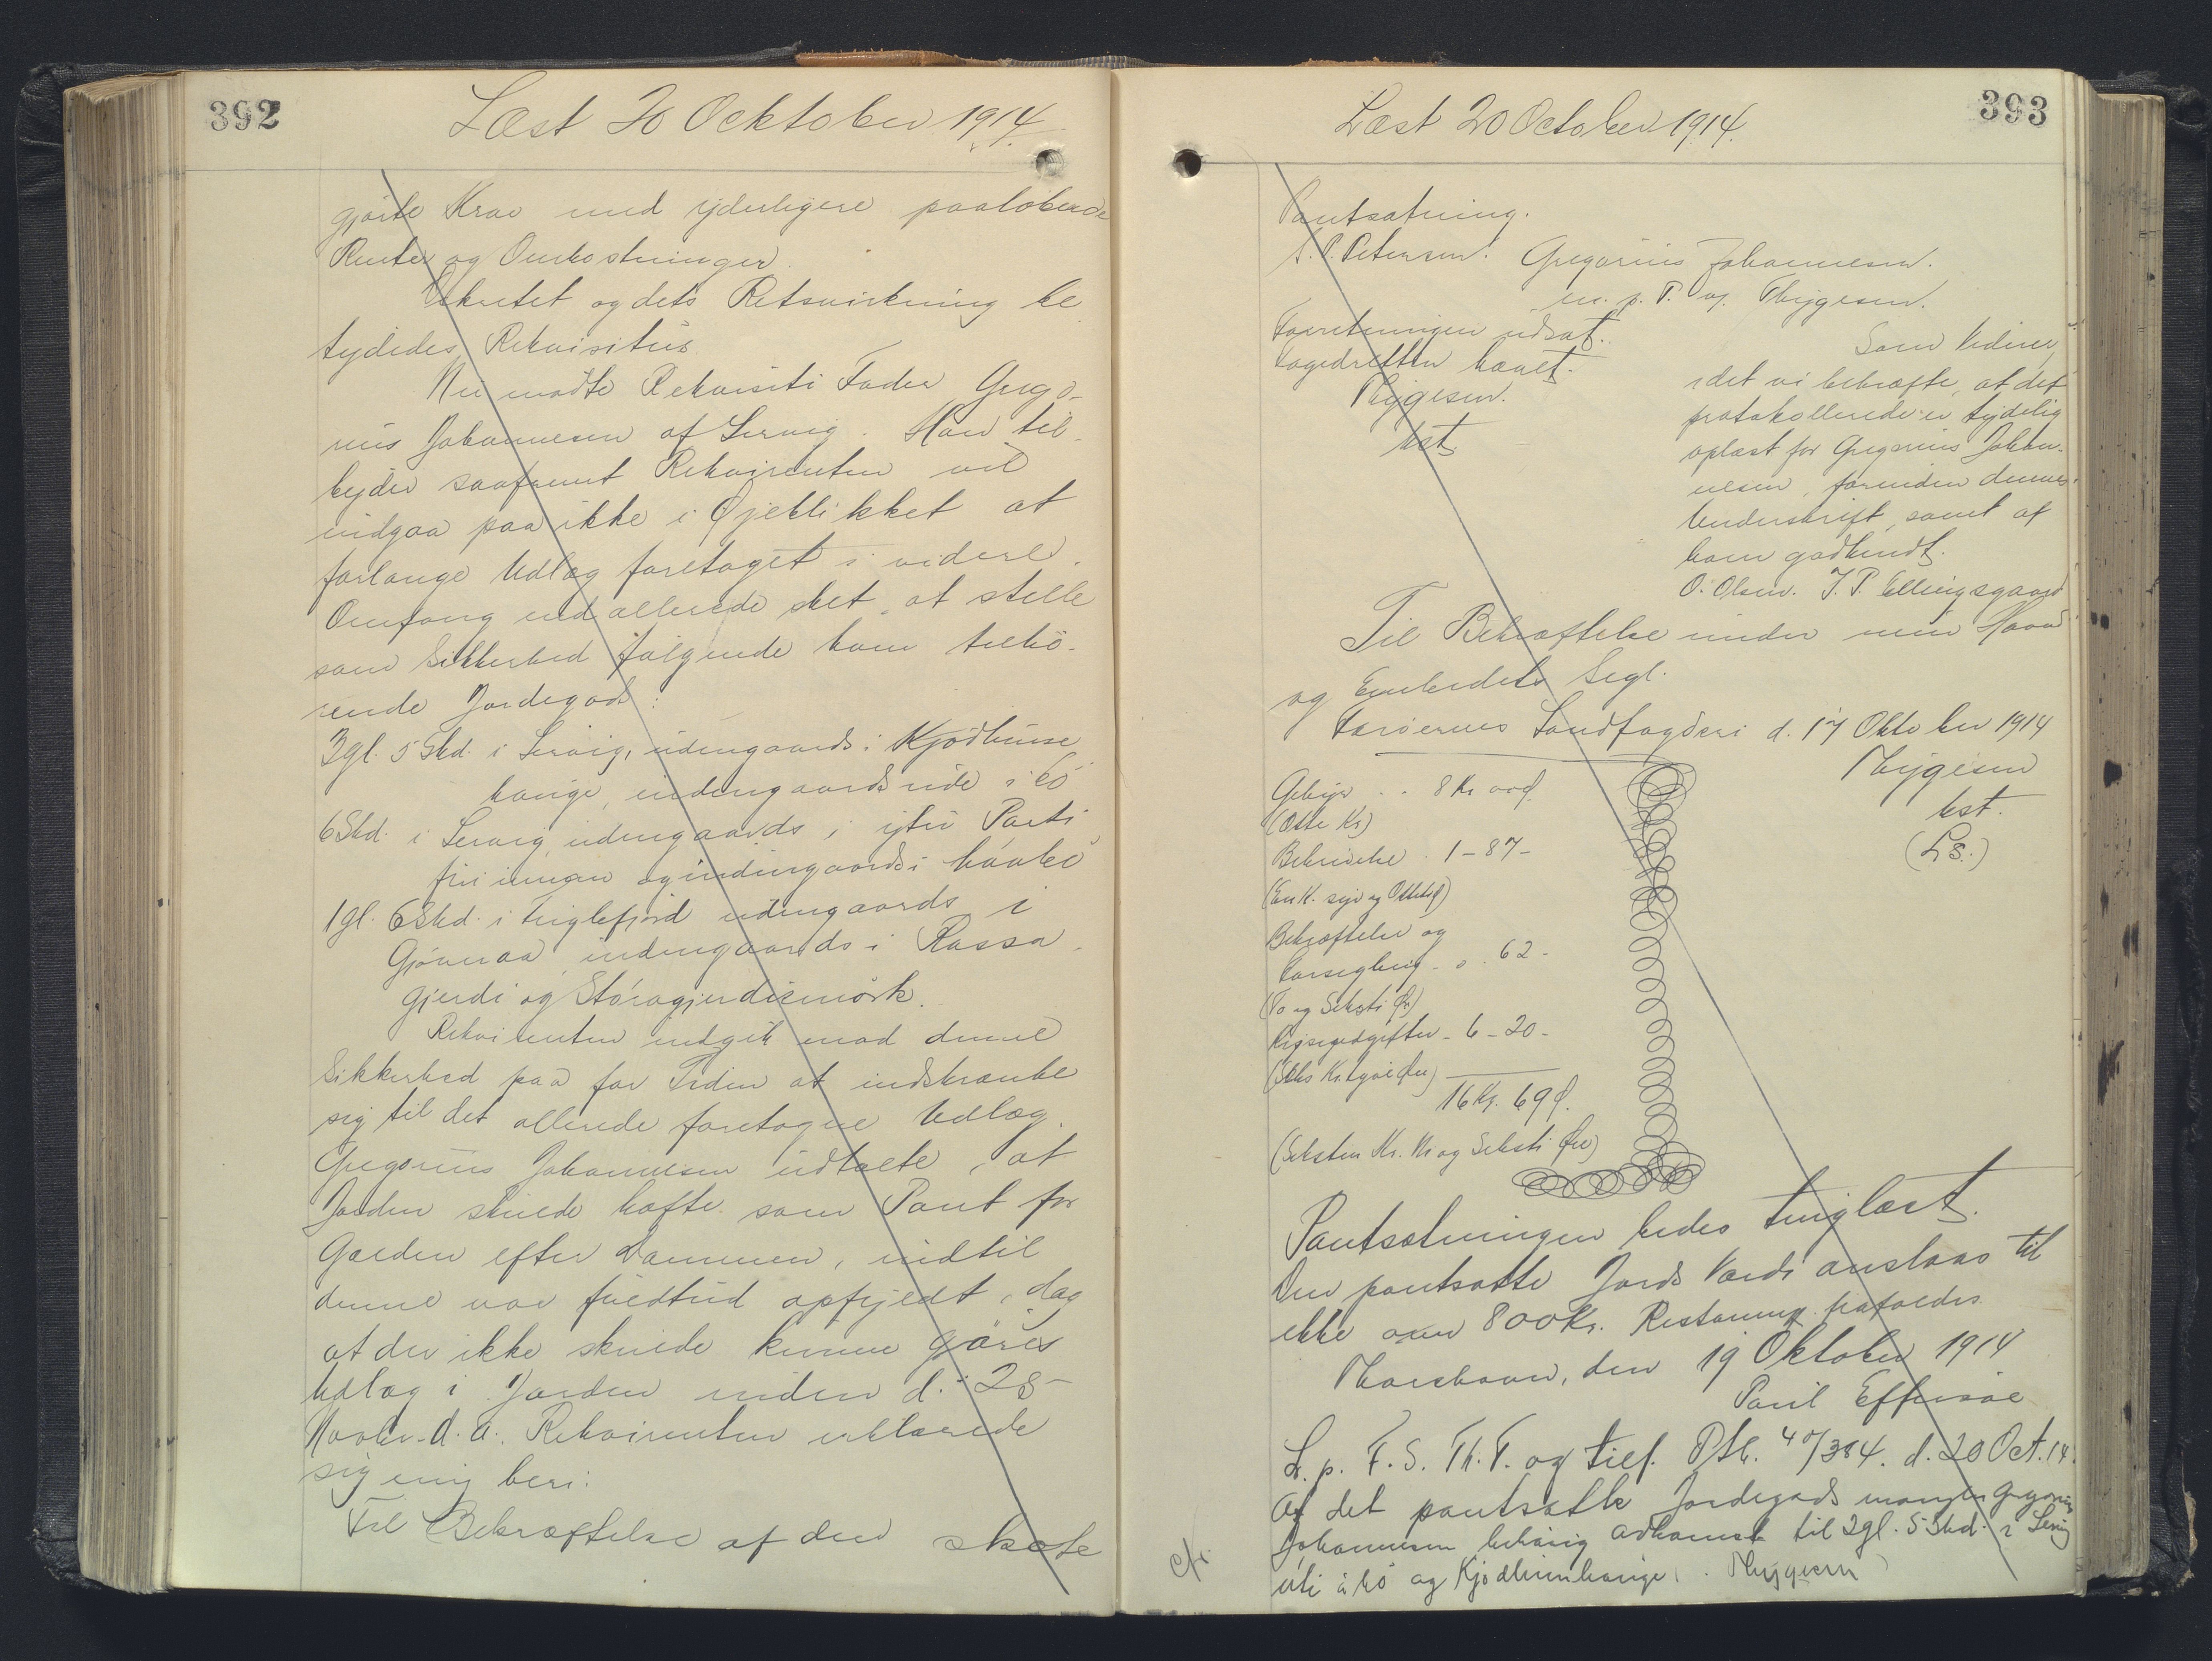 392
Læst 20 Ocktober 1914.
gjorte Krav med yderligere paaløbende
Renter og Omkostninger.
Dekretet og dets Retsvirkning be
tydedes Rekvisitus.
Nu mødte Rekvisiti Fader Grego-
rius Johannesen af Lervig. Han til-
byder saafremt Rekvirenten vil
indgaa paa ikke i Øjeblikket at
forlange Udlæg foretaget i videre
Omfang end allerede sket, at stille
som Sikkerhed følgende ham tilhø-
rende Jordegods:
3gl. 5 Skd. i Lervig, udengaards i Kjødhuus
hauge, indengaards úti á bø
6 Skd. i Lervig udengaards i ytri Parti
firi innan og indengaards i
1gl. 6 Skd. i Fuglefjord udengaards i
Gjónnaa, indengaards i Rassa
gjerdi og Stóragjerdismørk.
Rekvirenten indgik mod denne
Sikkerhed paa for Tiden at indskrænke
sig til det allerede foretagne Udlæg.
Gregorius Johannesen udtalte, at
Jorden skulde hæfte som Pant for
Gælden efter Dommen, indtil
denne var fuldtud opfyldt, dog
at der ikke skulde kunne gøres
Udlæg i Jorden inden d. 28-
Novbr. d.A. Rekvirenten erklærede
sig enig heri.
Til Bekræftelse af den skete
393
Læst 20 October 1914.
Pantsætning.
S. P. Petersen. Gregorius Johannesen.
m. p. P. og Thygesen.
Forretningen udsat.
Fogedretten hævet.
Thygesen.
kst.
Som Vidner,
idet vi bekræfte, at det
protokollerede er tydelig
oplæst for Gregorius Johan-
nesen, forinden dennes
Underskrift, samt af
ham godkendt.
O. Olsen. J. P. Ellingsgaard
Til Bekræftelse under min Haand
og Embedets Segl.
Færøernes Landfogderi d. 17 Oktober 1914
Thygesen
kst.
(L.S.)
Gebyr . . 8 Kr. 00 Ø.
(Otte Kr.)
Beskrivelse . 1 - 87 -
(En K. syv og Ottets Ø)
Bekræftelse og
Forsegling - 0 . 62 -
(To og Seksti Ør)
Rejseudgifter - 6 - 20 -
(Seks Kr. tyve Øre)
16 Kr. 69 Ø.
(Seksten Kr. Ni og Seksti Øre)
Pantsætningen bedes tinglæst.
Den pantsatte Jords Værdi anslaas til
ikke over 800 Kr. Restancer frafaldes
Thorshavn, den 19 Oktober 1914
Paul Effersøe
L. p. F. S. Th. T. og tilf. Ptk. 40/384. d. 20 Oct. 14.
Af det pantsatte Jordegods mangler Gregorius
Johannesen behørig Adkomst til 3gl. 5 Skd. i Lervig
úti á bø og Kjødhuushauge. Thygesen
cfr.